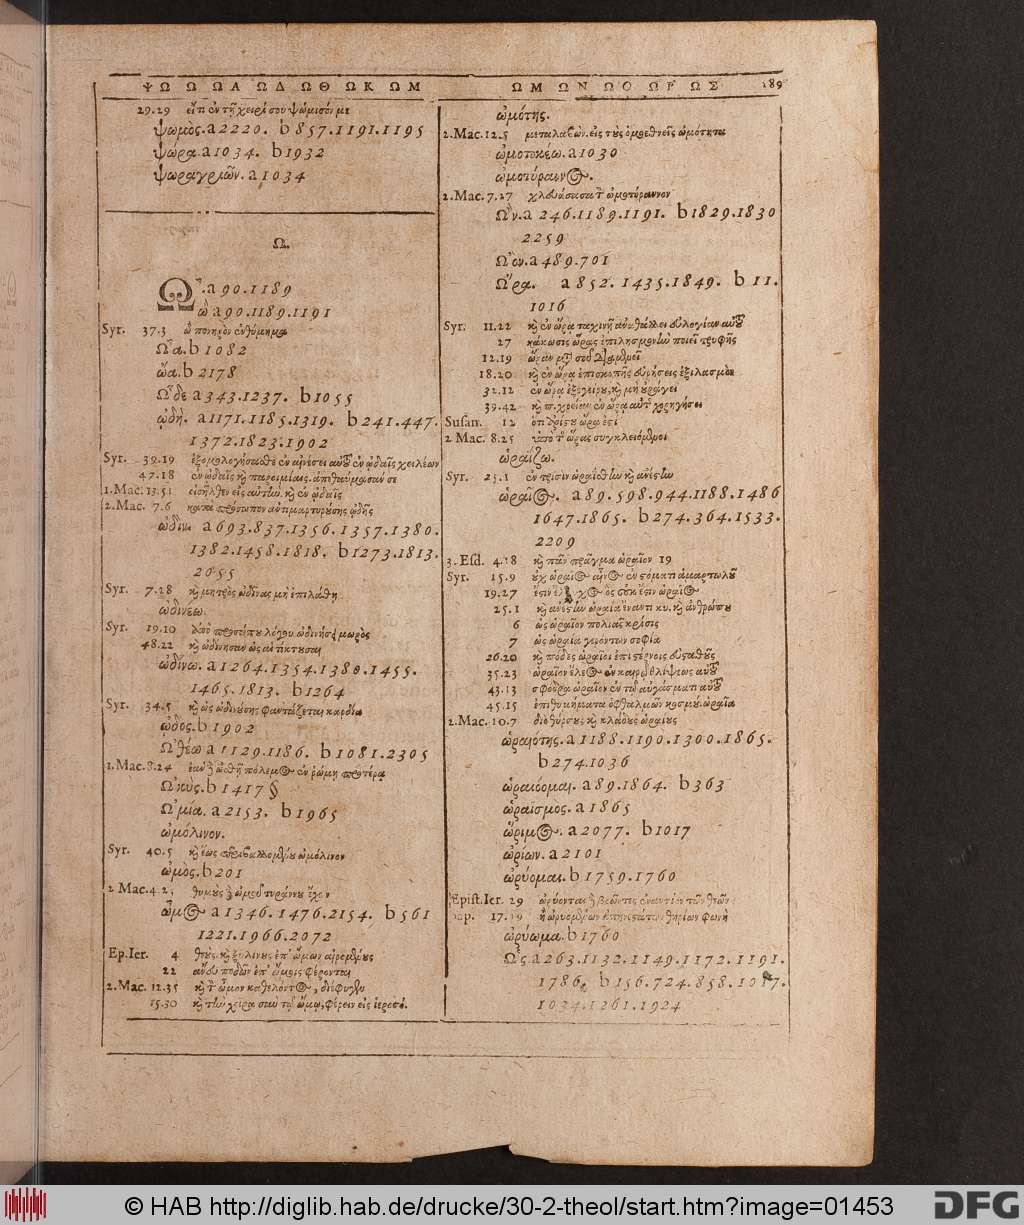 ΨΩ Ω ΩΑ ΩΔ ΩΘ ΩΚ ΩΜ
29.29 εἴ τι ἐν τῇ χειρί σου ψώμισόν με
ψωμὸς. a 2220. b 857.1191.1195
ψώρα. a 1034. b 1932
ψωραγριῶν. a 1034
Ω.
Ω῏. a 90.1189
ὢ a 90.1189.1191
Syr. 37.3 ὦ πονηρὸν ἐνθύμημα
Ὦα. b 1082
ὤα. b 2178
Ὧδε a 343.1237. b 1055
ᾠδὴ. a 1171.1185.1319. b 241.447.
1372.1823.1902
Syr. 39.19 ἐξομολογήσασθε ἐν αἰνέσει αὐτοῦ ἐν ᾠδαῖς χειλέων
47.18 ἐν ᾠδαῖς καὶ παροιμίαις. ἀπεθαύμασάν σε
1. Mac. 13.51 εἰσῆλθεν εἰς αὐτὴν. καὶ ἐν ᾠδαῖς
2. Mac. 7.6 κατὰ πρόσωπον ἀντιμαρτυρούσης ᾠδῆς
ὠδὶν. a 693.837.1356.1357.1380.
1382.1458.1818. b 1273.1813.
2055
Syr. 7.28 καὶ μητρὸς ὠδῖνας μὴ ἐπιλάθῃ
ὠδινέω.
Syr. 19.10 ἀπὸ προσώπου λόγου ὠδινήσει μωρὸς
48.22 καὶ ὠδίνησαν ὡς αἱ τίκτουσαι
ὠδίνω. a 1264.1354.1380.1455.
1465.1813. b 1264
Syr. 34.5 καὶ ὡς ὠδινούσης φαντάζεται καρδία
ᾠδὸς. b 1902
Ὠθέω a 1129.1186. b 1081.2305
1. Mac. 8.24 ἐὰν δὲ ὠσθῇ πόλεμος ἐν ῥώμῃ προτέρᾳ
Ὠκὺς. b 1417 §
Ὠμία. a 2153. b 1965
ὠμόλινον.
Syr. 40.5 καὶ ἕως περιβαλλομένου ὠμόλινον
ὠμὸς. b 201
2 Mac. 4.25 θυμοὺς δὲ ὠμοῦ τυράννου ἔχων
ὦμος a 1346.1476.2154. b 561
1221.1966.2072
Ep. Ier. 4 θεοὺς. καὶ ξυλίνους ἐπ' ὤμων αἰρομένους
22 ἄνευ ποδῶν ἐπ' ὤμοις φέρονται
2. Mac. 12.35 καὶ τὸν ὦμον καθελόντος, διέφυγεν
15.30 καὶ τὴν χεῖρα σὺν τῷ ὤμῳ, φέρειν εἰς ἱεροσό.
ΩΜ ΩΝ ΩΟ ΩΡ ΩΣ 189
ὠμότης.
2. Mac. 12.5 μεταλαβών. εἰς τοὺς ὁμοεθνεῖς ὠμότητα
ὠμοτοκέω. a 1030
ὠμοτύραννος.
2. Mac. 7.27 χλευάσασα τὸν ὠμοτύραννον
Ὢν. a 246.1189.1191. b 1829.1830
2259
Ὠὸν. a 489.701
Ὥρα. a 852.1435.1849. b 11.
1016
Syr. 11.22 καὶ ἐν ὥρᾳ ταχινῇ ἀναθάλλει εὐλογίαν αὐτοῦ
27 κάκωσις ὥρας ἐπιλησμονὴν ποιεῖ τρυφῆς
12.19 ὥραν μετὰ σοῦ διαμενεῖ
18.20 καὶ ἐν ὥρᾳ ἐπισκοπῆς εὑρήσεις ἐξιλασμὸν
32.12 ἐν ὥρᾳ ἐξεγείρου, καὶ μὴ οὐράγει
39.42 καὶ π. χρείαν ἐν ὥρᾳ αὐτῆς χορηγήσει
Susan. 12 ὅτι ἀρίστου ὥρα ἐστὶ
2 Mac. 8.25 ὑπὸ τῆς ὥρας συγκλειόμενοι
ὡραίζω.
Syr. 25.1 ἐν τρισὶν ὡραΐσθην καὶ ἀνέστην
ὡραῖος. a 89.598.944.1188.1486
1647.1865. b 274.364.1533.
2209
3. Esd. 4.18 καὶ πᾶν πρᾶγμα ὡραῖον 19
Syr. 15.9 οὐχ ὡραῖος αἶνος ἐν στόματι ἁμαρτωλοῦ
19.27 ὃς οὐκ ἔστιν ὡραῖος
25.1 καὶ ἀνέστην ὡραία ἔναντι κυ. καὶ ἀνθρώπων
6 ὡς ὡραῖον πολιαῖς κρίσις
7 ὡς ὡραία γερόντων σοφία
26.20 καὶ πόδες ὡραῖοι ἐπὶ στέρνοις εὐσταθοῦς
35.23 ὡραῖον ἔλεος ἐν καιρῷ θλίψεως αὐτοῦ
43.13 σφόδρα ὡραῖον ἐν τῷ αὐγάσματι αὐτοῦ
45.15 ἐπιθυμήματα ὀφθαλμῶν κοσμού. ὡραῖα
2. Mac. 10.7 διὸ θύρσους καὶ κλάδους ὡραίους
ὡραιότης. a 1188.1190.1300.1865.
b 274.1036
ὡραιόομαι. a 89.1864. b 363
ὡραισμος. a 1865
ὥριμος. a 2077. b 1017
ὠρίων. a 2101
ὠρύομαι. b 1759.1760
Epist. Ier. 29 ὠρύονται δὲ βοῶντες ἐναντίον τῶν θεῶν
17.19 ἢ ὠρυομένων ἀπηνεστάτων θηρίων φωνὴ
ὠρύωμα. b 1760
Ὡς a 263.1132.1149.1172.1191.
1786. b 156.724.858.1017.
1034.1261.1924
© HAB http://diglib.hab.de/drucke/30-2-theol/start.htm?image=01453
DFG